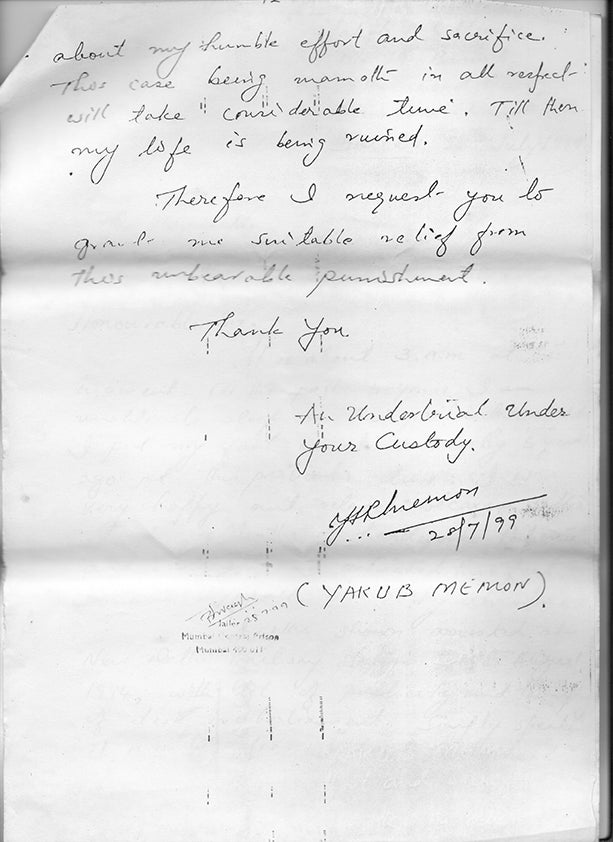 about my humble effort and sacrifice.
This case being mamoth in all respect
will take considerable time. Till then
my life is being ruined.
Therefore I request you to
grant me suitable relief from
this unbearable punishment.
Thank You.
An Undertrial Under
Your Custody.
28/7/99
(YAKUB MEMON).
Jailor 28 7 99
Mumbai Central Prison
Mumbai 400 011